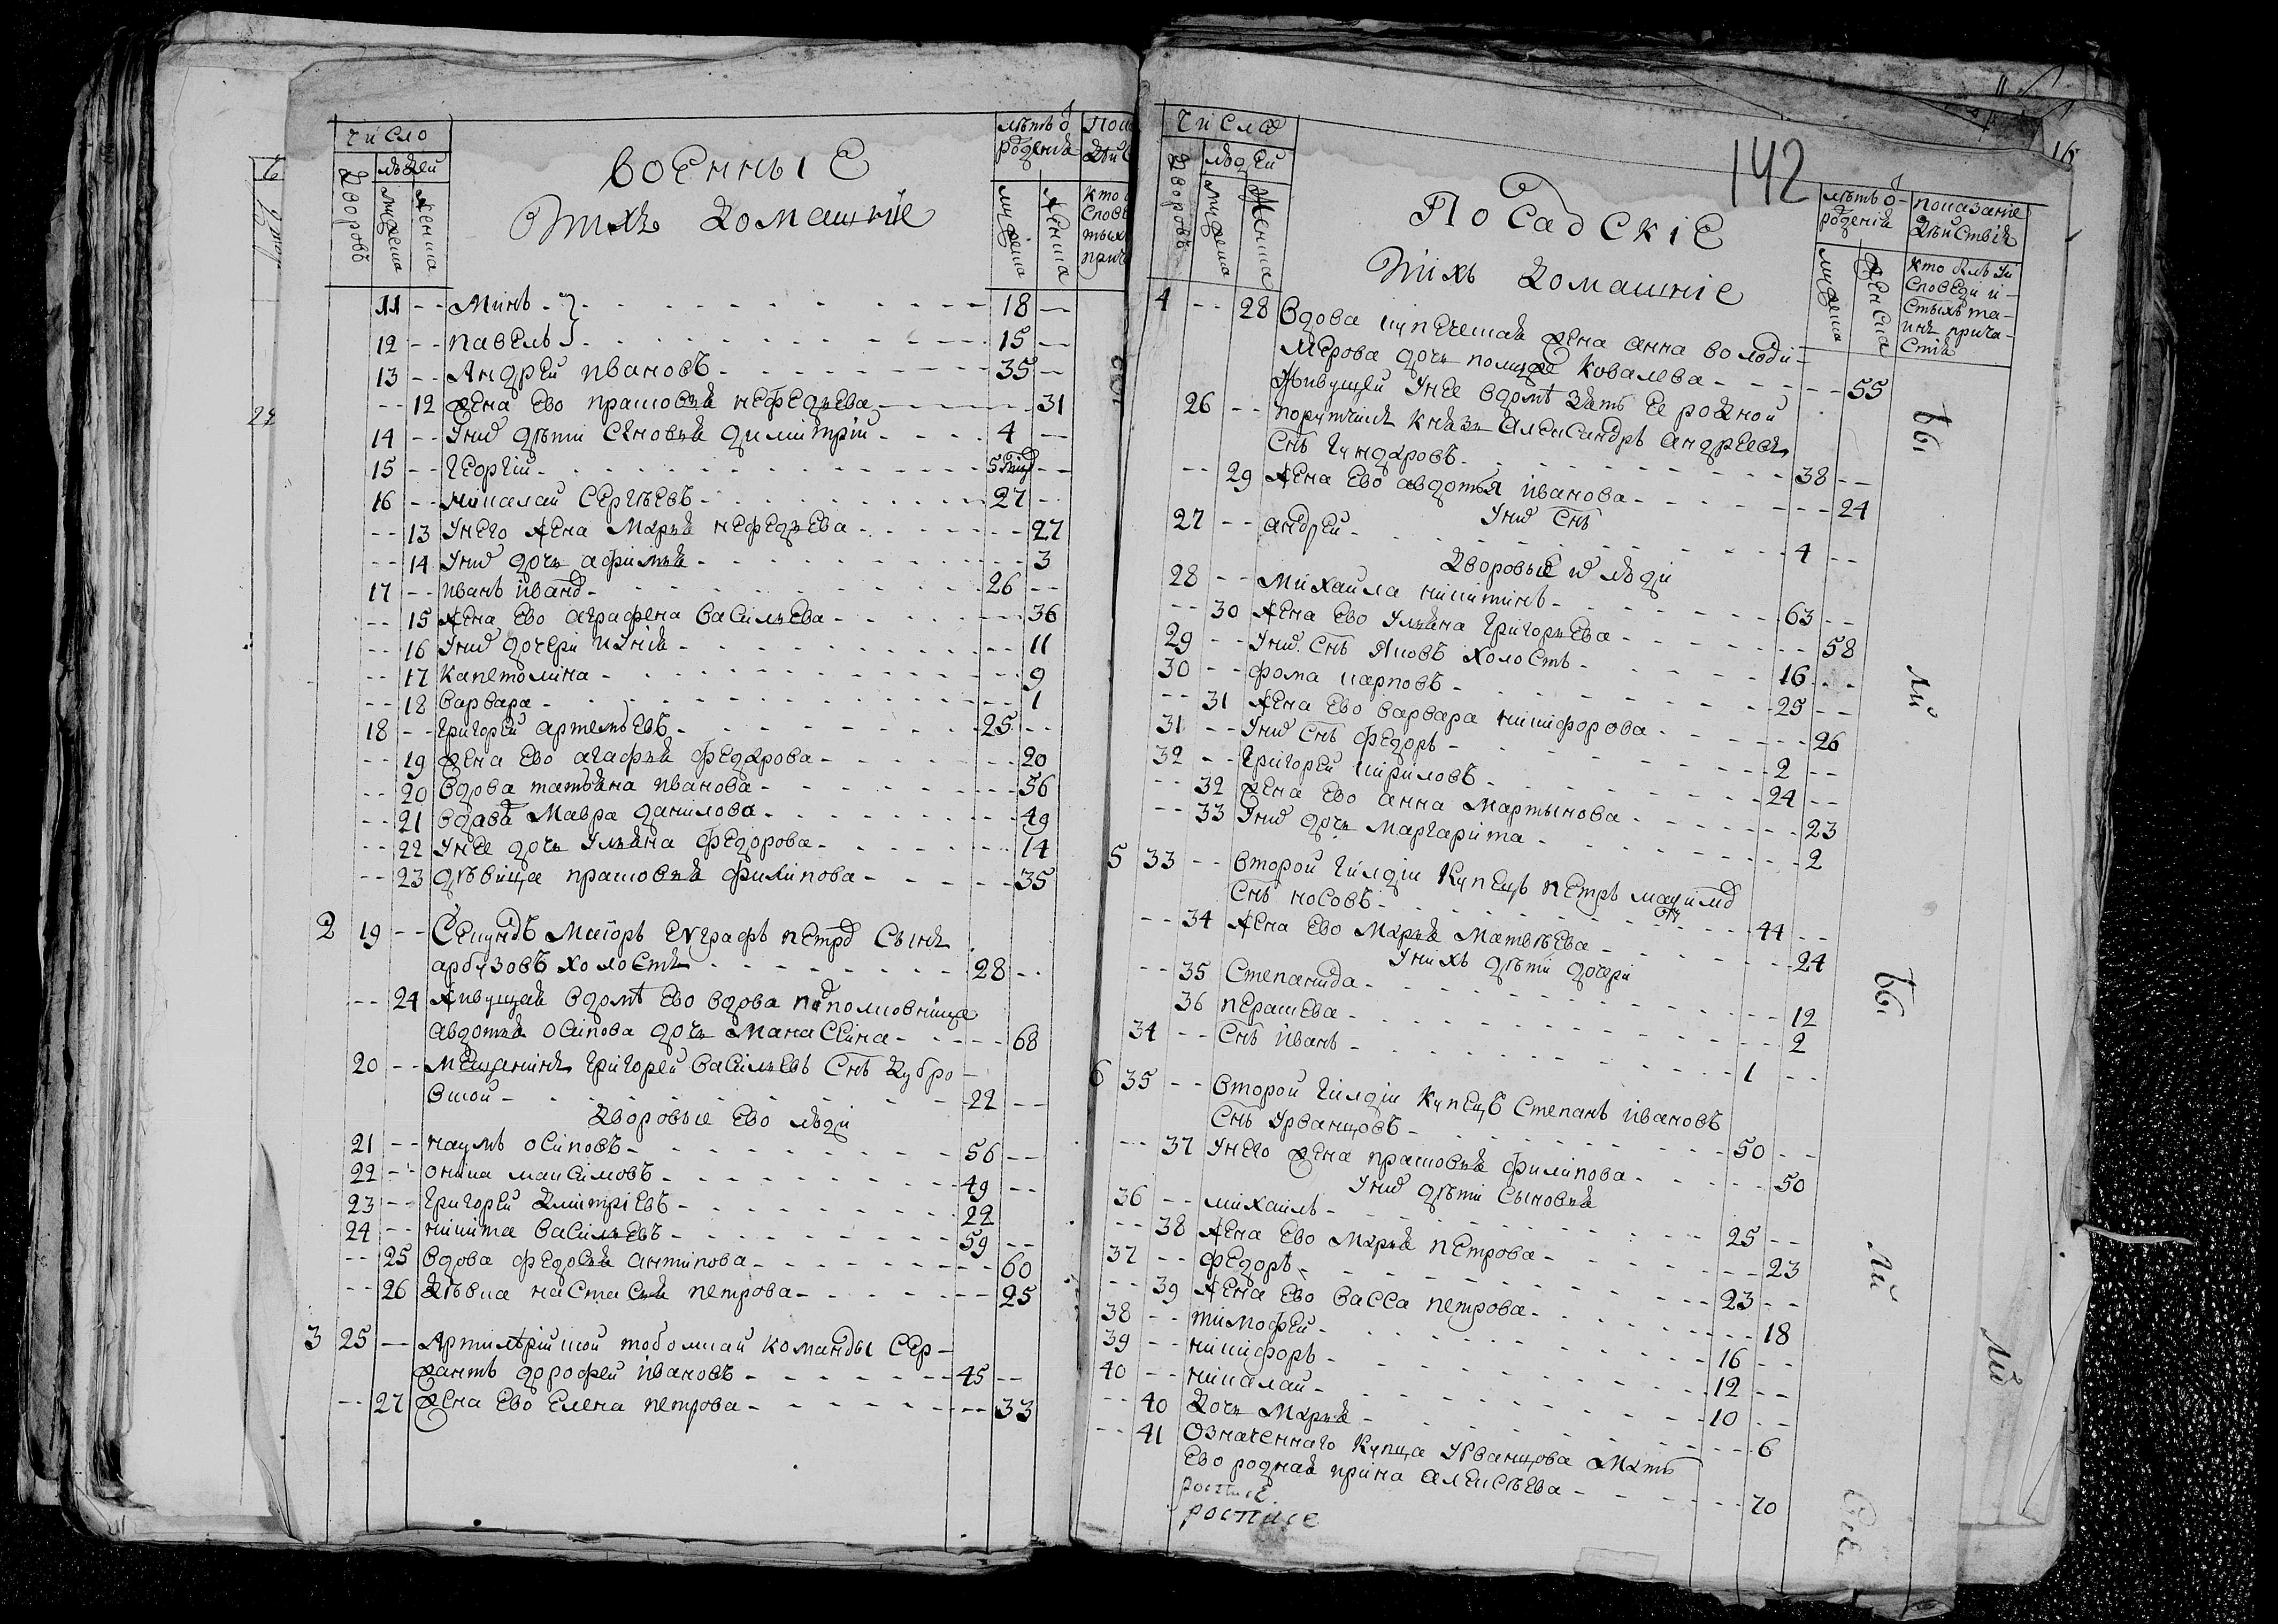 Число
Дворовъ
людей
мужеска
женска
военныЕ
и ихъ Домашніе
лѣтъ о
рожденія
мужеска
женска
Пока
Дѣйс
кто
Спов
тыхъ
прич
11 -- Минъ - 18 --
12 -- павелъ - 15 --
13 -- Андрей ивановъ - 35 --
-- 12 жена Ево прасковья нефедьева - 31
14 -- Унихъ дѣти Сновья димитрій - 4 --
15 -- георгій -
16 -- николай Сергѣевъ - 27 --
-- 13 Унего жена Марья нефедьева - 27
-- 14 Унихъ дочь афимья - 3
17 -- иванъ ивановъ - 26 --
-- 15 жена Ево аграфена васильева - 36
-- 16 Унихъ дочери - 11
-- 17 капетолина - 9
-- 18 варвара - 1
18 -- григорей артемьевъ - 25 --
-- 19 жена Ево агафья федорова - 20
-- 20 вдова татьяна иванова - 56
-- 21 вдова Мавра данилова - 49
-- 22 Унее дочь Ульяна федорова - 14
-- 23 дѣвица прасковья филипова - 35
2 19 -- Секундъ Маіоръ Еѵграфъ петровъ Сынъ
арбузовъ холостъ - 28 --
-- 24 живущая вдомѣ Ево вдова подполковница
авдотья осипова дочь Манасеина - 68
20 -- мещанинъ григорей васильевъ Снъ Дубро-
вской - 22 --
Дворовые Ево люди
21 -- наумъ осиповъ - 56 --
22 -- оника максимовъ - 49 --
23 -- григорей Дмитріевъ - 22
24 -- никита васильевъ - 59 --
-- 25 вдова федосья антипова - 60
-- 26 Дѣвка настасья петрова - 25
3 25 -- Артилѣрійской тобольской команды Сер-
жантъ дорофей ивановъ - 45 --
-- 27 жена Ево Елена петрова - 33
142
16
Числа
Дворовъ
людей
мужеска
женска
ПосадскіЕ
и ихъ Домашніе
лѣтъ о-
рожденія
мужеска
женска
показаніе
Дѣйствія
кто былъ Уи
Споведи и
Стыхъ та-
инъ прича-
стія
4 -- 28 вдова купеческая жена анна володи-
Мерова дочь помужѣ Ковалева - 55
живущей Унее вдомѣ зять Ее родной
26 -- порутчикъ князь Александръ андреевъ
Снъ гундоровъ - 38 --
-- 29 жена Ево авдотья иванова - 24
Унихъ Снъ
27 -- андрей - 4 --
Дворовые их люди
28 -- Михайла никитинъ - 63 --
-- 30 жена Ево Ульяна григорьева - 58
29 -- Унихъ Снъ Яковъ холостъ - 16 --
30 -- фома карповъ - 25 --
-- 31 жена Ево варвара никифорова - 26
31 -- Унихъ Снъ федоръ - 2 --
32 -- григорей кириловъ - 24 --
-- 32 жена Ево анна Мартынова - 23
-- 33 Унихъ дочь Маргарита - 2
5 33 -- второй гилдіи Купецъ петръ максимовъ
Снъ носовъ - 44 --
-- 34 жена Ево Марья Матвѣева - 24
Унихъ дѣти дочери
-- 35 Степанида - 12
36 парасковья - 2
34 -- Снъ иванъ - 1 --
6 35 -- второй гилдіи Купецъ Степанъ ивановъ
Снъ Урванцовъ - 50 --
-- 37 Унего жена прасковья филипова - 50
Унихъ дѣти Сыновья
36 -- михаилъ - 25 --
-- 38 жена Ево Марья петрова - 23
37 -- федоръ - 23 --
-- 39 жена Ево васса петрова - 18
38 -- тимофей - 16 --
39 -- никифоръ - 12 --
40 -- николай - 10 --
-- 40 Дочь Марья - 6
-- 41 означеннаго Купца Урванцова Мать
Ево родная ирина алексѣева - 70
росписе
росписе
бы
ли
бы
ли
ли